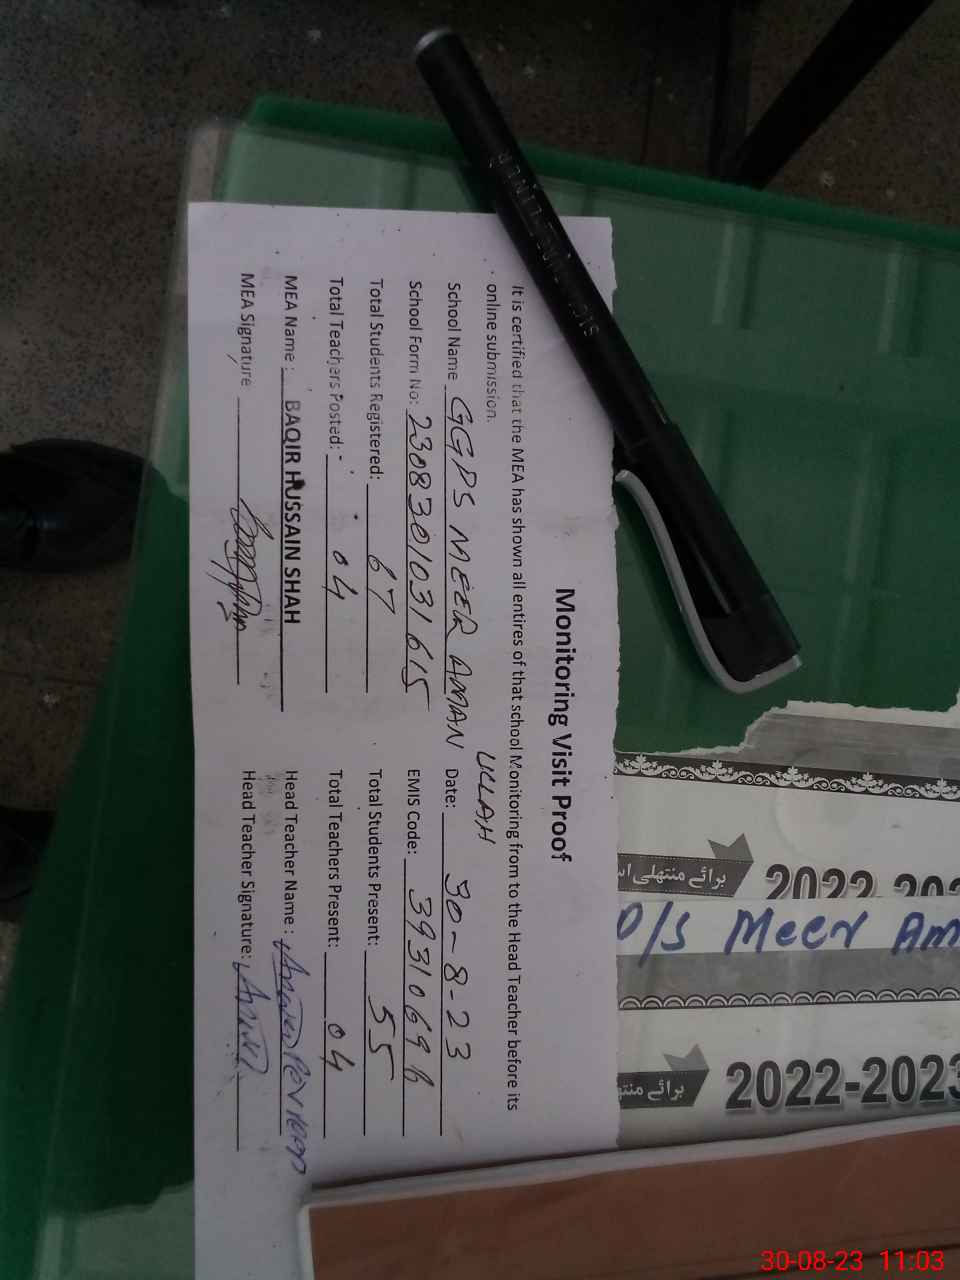 Monitoring Visit Proof
It is certified that the MEA has shown all entires of that school Monitoring from to the Head Teacher before its
online submission.
School Name GGPS MEER AMAN ULLAH Date: 30-8-23
School Form No: 2308301031615 EMIS Code: 3931069
Total Students Registered: 67 Total Students Present: 55
Total Teachers Posted:- 04 Total Teachers Present: 04
MEA Name : BAQIR HUSSAIN SHAH Head Teacher Name :
MEA Signature Head Teacher Signature:
2022-202
برائے منتھلی
D/S Meer Am
2022-2023
برائے
30-08-23 11:03